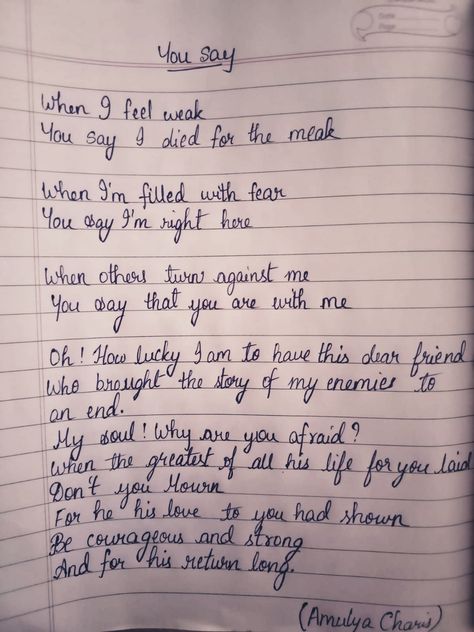 You say
When I feel weak
You say I died for the meak
When I'm filled with fear
You say I'm right here
When others turn against me
You say that you are with me
Oh! How lucky I am to have this dear friend
Who brought the story of my enemies to
an end.
My soul! Why are you afraid?
When the greatest of all his life for you laid
Don't you Mourn
For he his love to you had shown
Be courageous and strong
And for his return long.
(Amulya Charis)